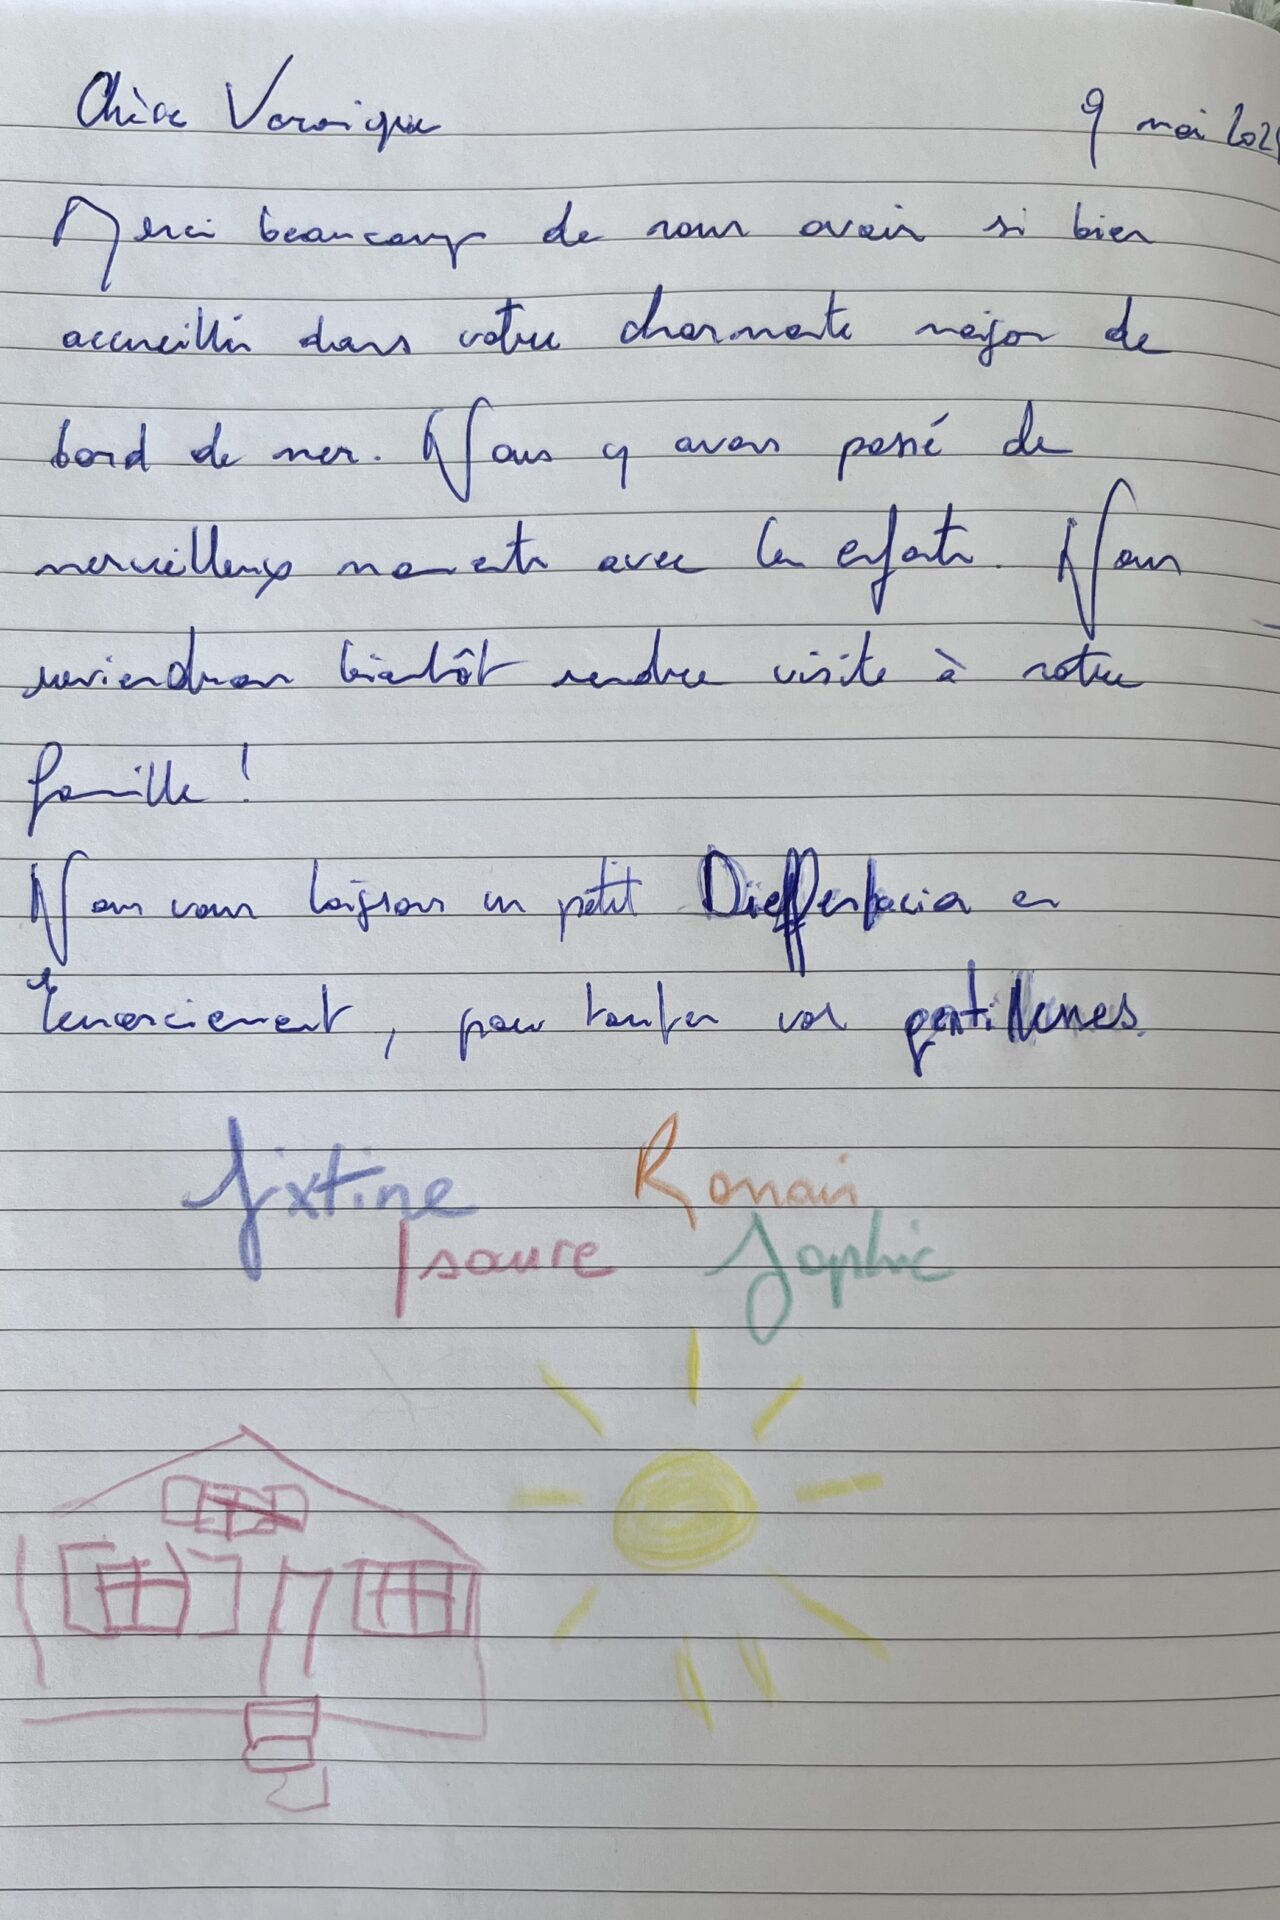 Chère Veronique
9 mai 202
Merci beaucoup de nous avoir si bien
accueillis dans votre charmante maison de
bord de mer. Nous y avons passé de
merveilleux moments avec les enfants. Nous
reviendrons bientôt rendre visite à notre
famille !
Nous vous laissons un petit Dieffenbacia en
remerciement, pour toutes vos gentillesses.
Sixtine Romain
Isaure Sophie